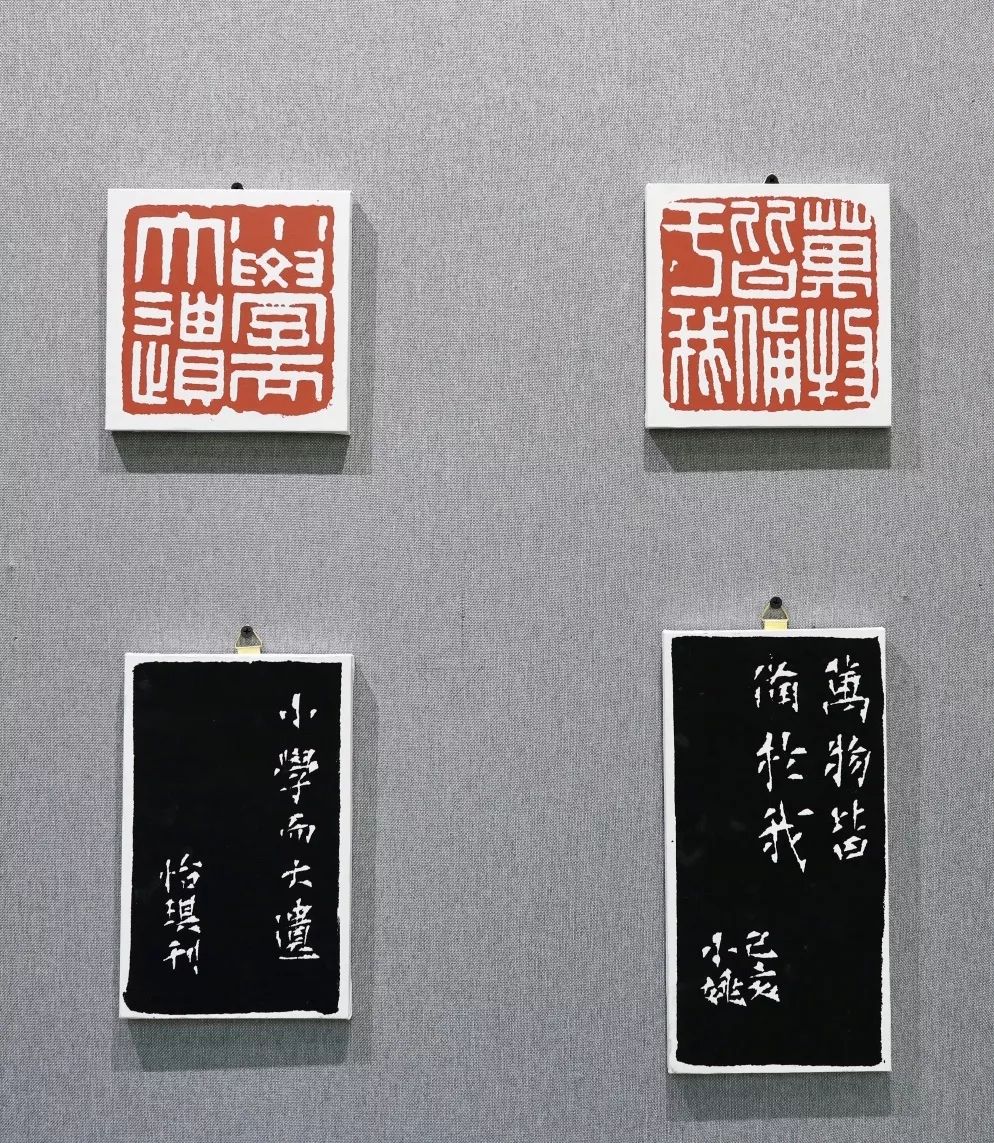 小學而
大遺
萬物
皆備
于我
小學而大遺
怡琪刊
萬物皆
備於我
己亥
小姚